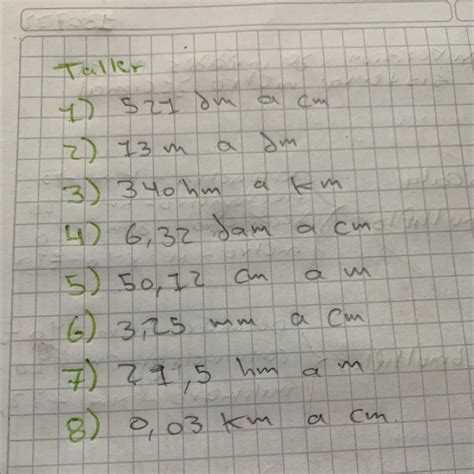 Taller
1) 521 dm a cm
2) 13 m a dm
3) 340 hm a km
4) 6,32 dam a cm
5) 50,12 cm a m
6) 3,25 mm a cm
7) 21,5 hm a m
8) 0,03 km a cm.